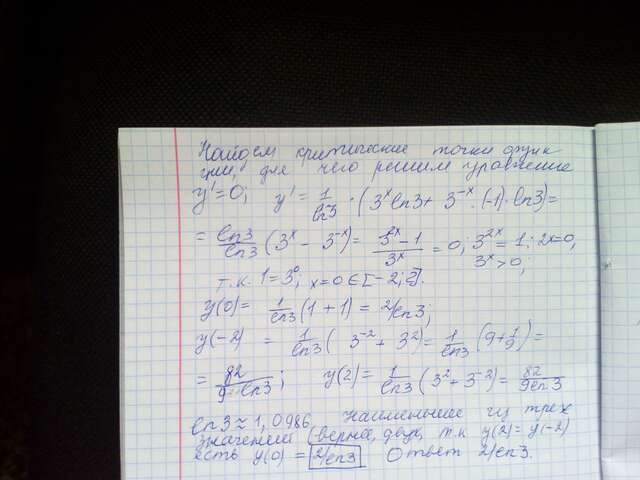 Найдем критические точки функ
ции, для чего решим уравнение
y'=0; y' = 1/ln3 · (3^x ln3 + 3^-x · (-1) · ln3) =
= ln3/ln3 (3^x - 3^-x) = (3^2x - 1)/3^x = 0; 3^2x = 1; 2x=0,
3^x > 0;
т.к. 1=3^0; x=0 ∈ [-2; 2].
y(0) = 1/ln3 (1+1) = 2/ln3;
y(-2) = 1/ln3 (3^-2 + 3^2) = 1/ln3 (9 + 1/9) =
= 82/(9·ln3); y(2) = 1/ln3 (3^2 + 3^-2) = 82/(9ln3)
ln3 ≈ 1,0986. Наименьшее из трех
значений (вернее, двух, т.к y(2) = y(-2)
есть y(0) = 2/ln3 Ответ 2/ln3.